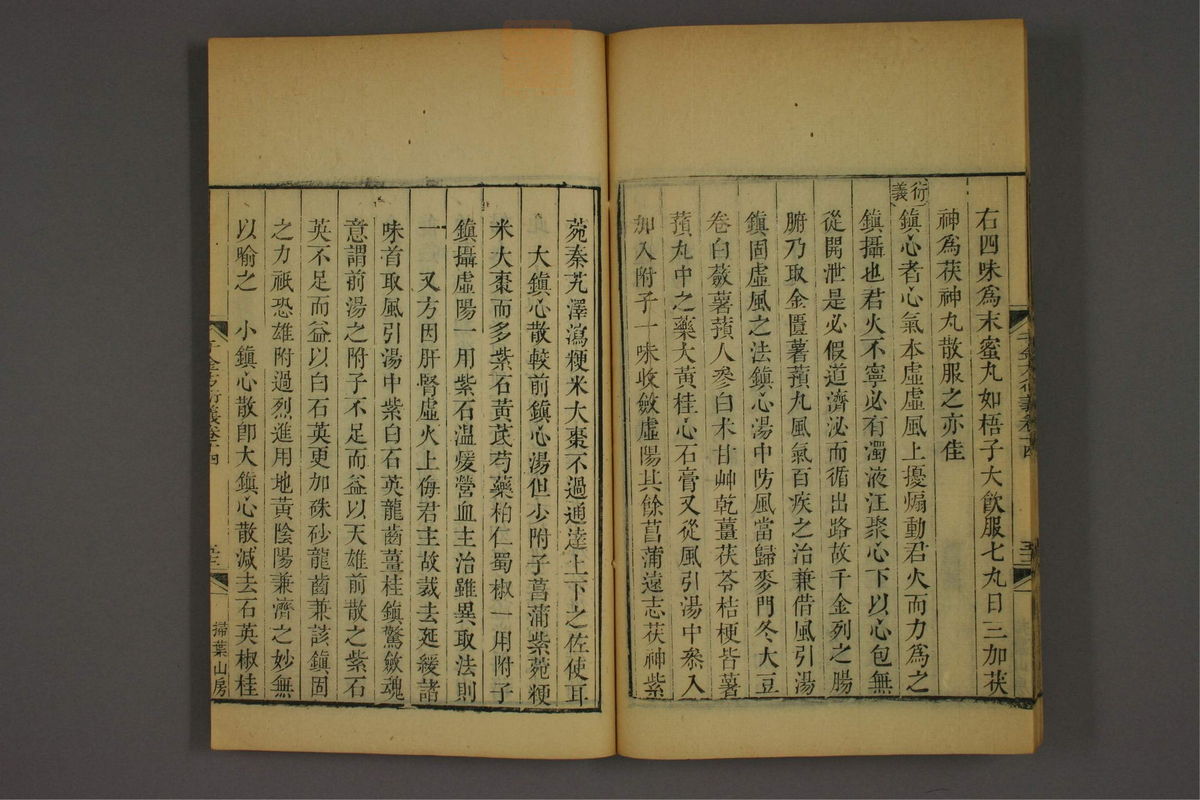 右四味爲末蜜丸如梧子大飲服七丸日三加茯
神爲茯神丸散服之亦佳
衍義
鎮心者心氣本虛虛風上擾煽動君火而力爲之
鎮攝也君火不寧必有濁液汪聚心下以心包無
從開泄是必假道濟泌而循出路故千金列之腸
腑乃取金匱薯蕷丸風氣百疾之治兼借風引湯
鎮固虛風之法鎮心湯中防風當歸麥門冬大豆
卷白蘞薯蕷人參白朮甘艸乾薑茯苓桔梗皆薯
蕷丸中之藥大黃桂心石膏又從風引湯中叅入
加入附子一味收斂虛陽其餘菖蒲遠志茯神紫
菀秦艽澤瀉粳米大棗不過通達上下之佐使耳
大鎮心散較前鎮心湯但少附子菖蒲紫菀粳
米大棗而多紫石黃芪芍藥柏仁蜀椒一用附子
鎮攝虛陽一用紫石温煖營血主治雖異取法則
一 又方因肝腎虛火上侮君主故裁去延緩諸
味首取風引湯中紫白石英龍齒薑桂鎮驚斂魂
意謂前湯之附子不足而益以天雄前散之紫石
英不足而益以白石英更加硃砂龍齒兼該鎮固
之力祇恐雄附過烈進用地黃陰陽兼濟之妙無
以喻之 小鎮心散卽大鎮心散減去石英椒桂
千金方衍義卷十四
掃葉山房